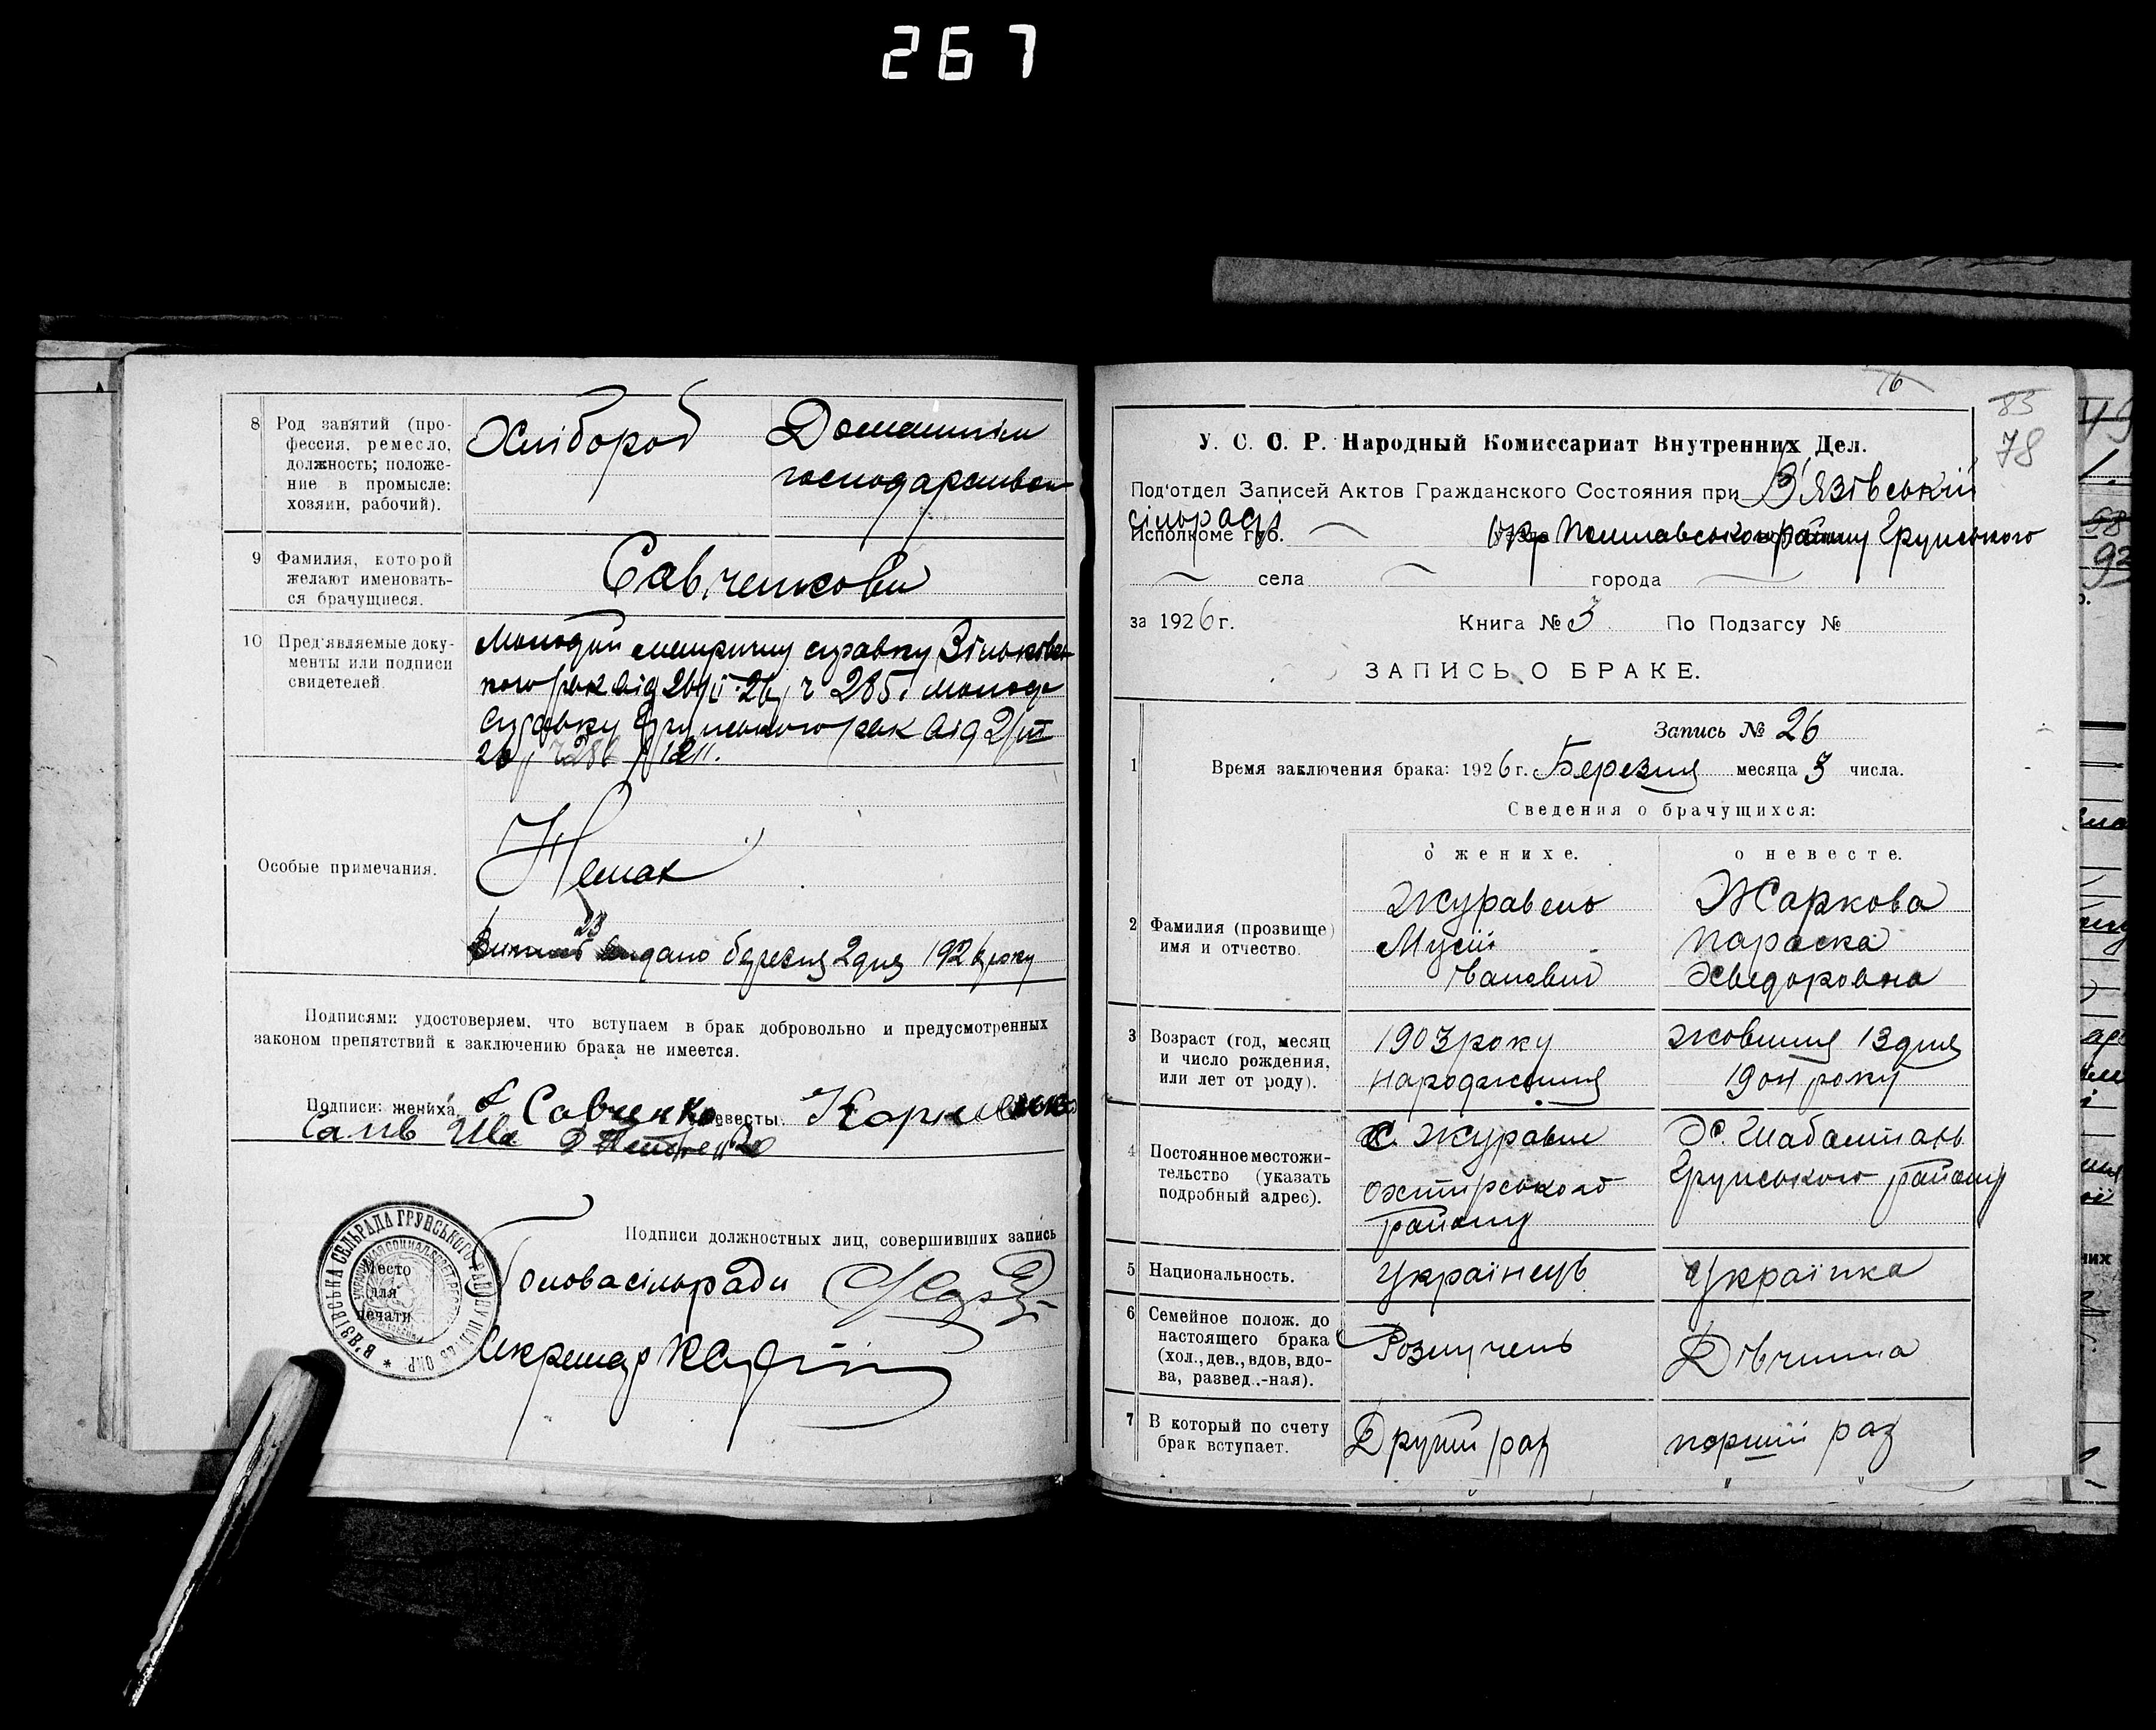 267
8 Род занятий (про-
фессия, ремесло,
должность; положе-
ние в промысле:
хозяин, рабочий).
Хлібороб
Домашнім
господарством
9 Фамилия, которой
желают именовать-
ся брачущиеся.
Савченкови
10 Пред'являемые доку-
менты или подписи
свидетелей.
Молодий метричну справку Зіньковсь-
кого рвк від 26/II-26, ч 285. молода
справку Грунського рвк від 2/III
26, 1211.
Особые примечания.
Немає
23
видано березня 2 дня 1926 року
Подписями удостоверяем, что вступаем в брак добровольно и предусмотренных
законом препятствий к заключению брака не имеется.
Подписи: жениха Савченко невесты:
Подписи должностных лиц, совершивших запись
В'ЯЗІВСЬКА СЕЛЬРАДА ГРУНСЬКОГО РАЙОНУ
Место
для
печати
Голова сільради
Секретар
76
83
78
У. С. С. Р. Народный Комиссариат Внутренних Дел.
Под'отдел Записей Актов Гражданского Состояния при В'язівський
сільраді
Исполкоме губ. окр Полтавського району Грунського
села города
за 1926 г. Книга № 3 По Подзагсу №
ЗАПИСЬ О БРАКЕ.
Запись № 26
1 Время заключения брака: 1926 г. Березня месяца 3 числа.
Сведения о брачущихся:
о женихе. о невесте.
2 Фамилия (прозвище)
имя и отчество.
Журавель
Мусій
Іванович
Жаркова
Параска
Хведоровна
3 Возраст (год, месяц
и число рождения,
или лет от роду).
1903 року
народження
жовтня 13 дня
1904 року
4 Постоянное местожи-
тельство (указать
подробный адрес).
С. Журавне
Охтирського
району
Х. Шабалтань
Грунського району
5 Национальность.
Українець
Українка
6 Семейное полож. до
настоящего брака
(хол., дев., вдов, вдо-
ва, развед.-ная).
Розлучень
Дівчина
7 В который по счету
брак вступает.
Другий раз
перший раз